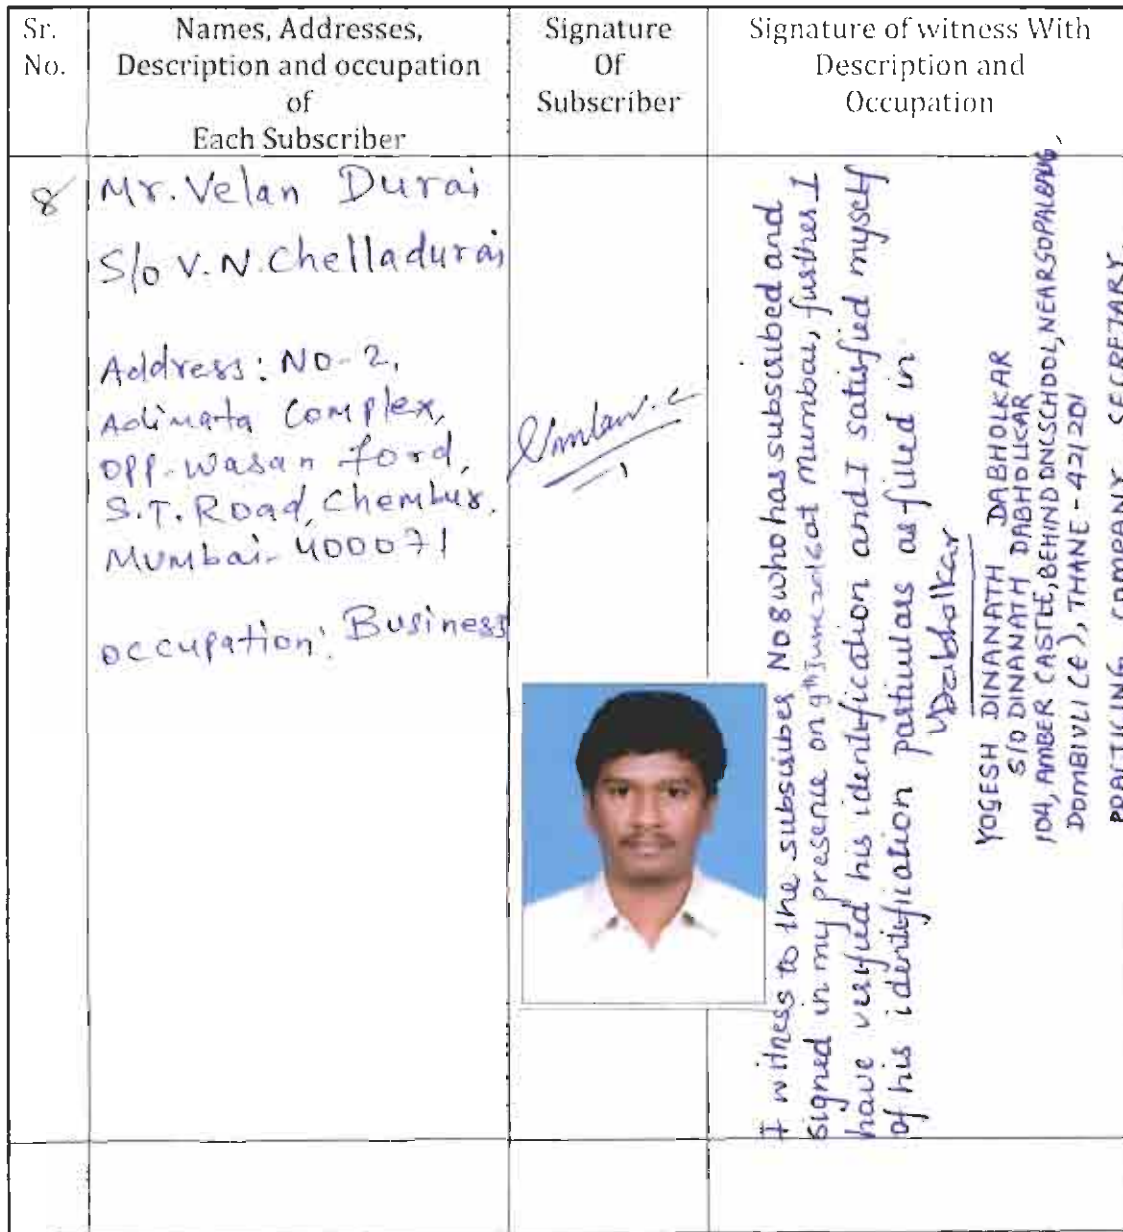 Sr.
No.
Names, Addresses,
Description and occupation
of
Each Subscriber
Signature
Of
Subscriber
Signature of witness With
Description and
Occupation
8
Mr. Velan Durai
S/o V. N. Chelladurai
Address: No-2,
Adimata Complex,
opp-Wasan ford,
S.T. Road, Chembur,
Mumbai- 400071
occupation: Business
I witness to the subscriber No 8 who has subscribed and
signed in my presence on 9th June 2016 at Mumbai, further I
have verified his identification and I satisfied myself
of his identification particulars as filled in
YDabholkar
YOGESH DINANATH DABHOLKAR
S/O DINANATH DABHOLKAR
104, AMBER CASTLE, BEHIND DNCSCHOOL, NEAR
DOMBIVLI (E), THANE - 421201
PRACTICING COMPANY SECRETARY.